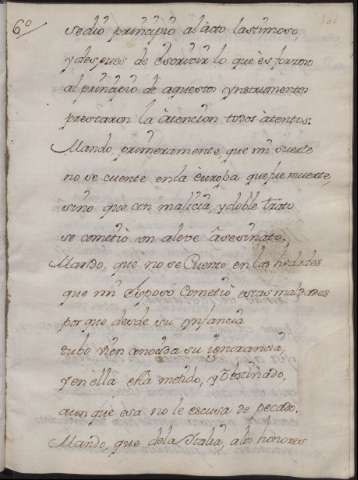 6º
sedio principio al acto lastimoso,
y despues de escrivir lo que es forzoso
al principio de aquesto ynstrumento
prestaron la atencion todos atentos.
Mando primeramente, que mi suerte
no se cuente en la Europa que fue muerte,
sino que con malicia, y doble trato
se cometio un aleve asesinato.
Mando, que no se cuente en las hedades
que mi Esposo cometio estas maldades
por que desde su ynfancia
tubo bien conocida su ignorancia,
y en ella está metido, y obstinado,
aun que esa no le escusa de pecado.
Mando, que dela Italia, a los honores